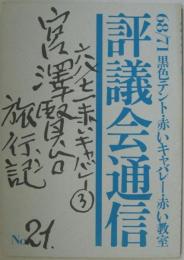 68/71黒色テント・赤いキャバレー・赤い教室
評議会通信
赤いキャバレー③
宮澤賢治
旅行記
No.21.